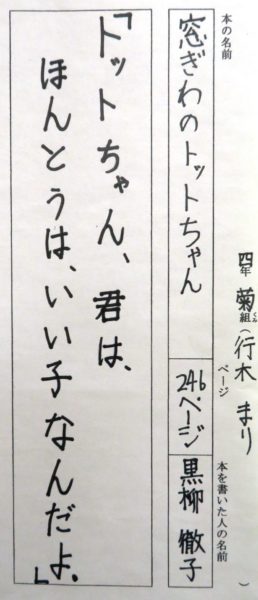 四年 菊組(行木 まり)
くみ
本の名前
窓ぎわのトットちゃん
ページ
246ページ
本を書いた人の名前
黒柳 徹子
「トットちゃん、君は、
ほんとうは、いい子なんだよ。」